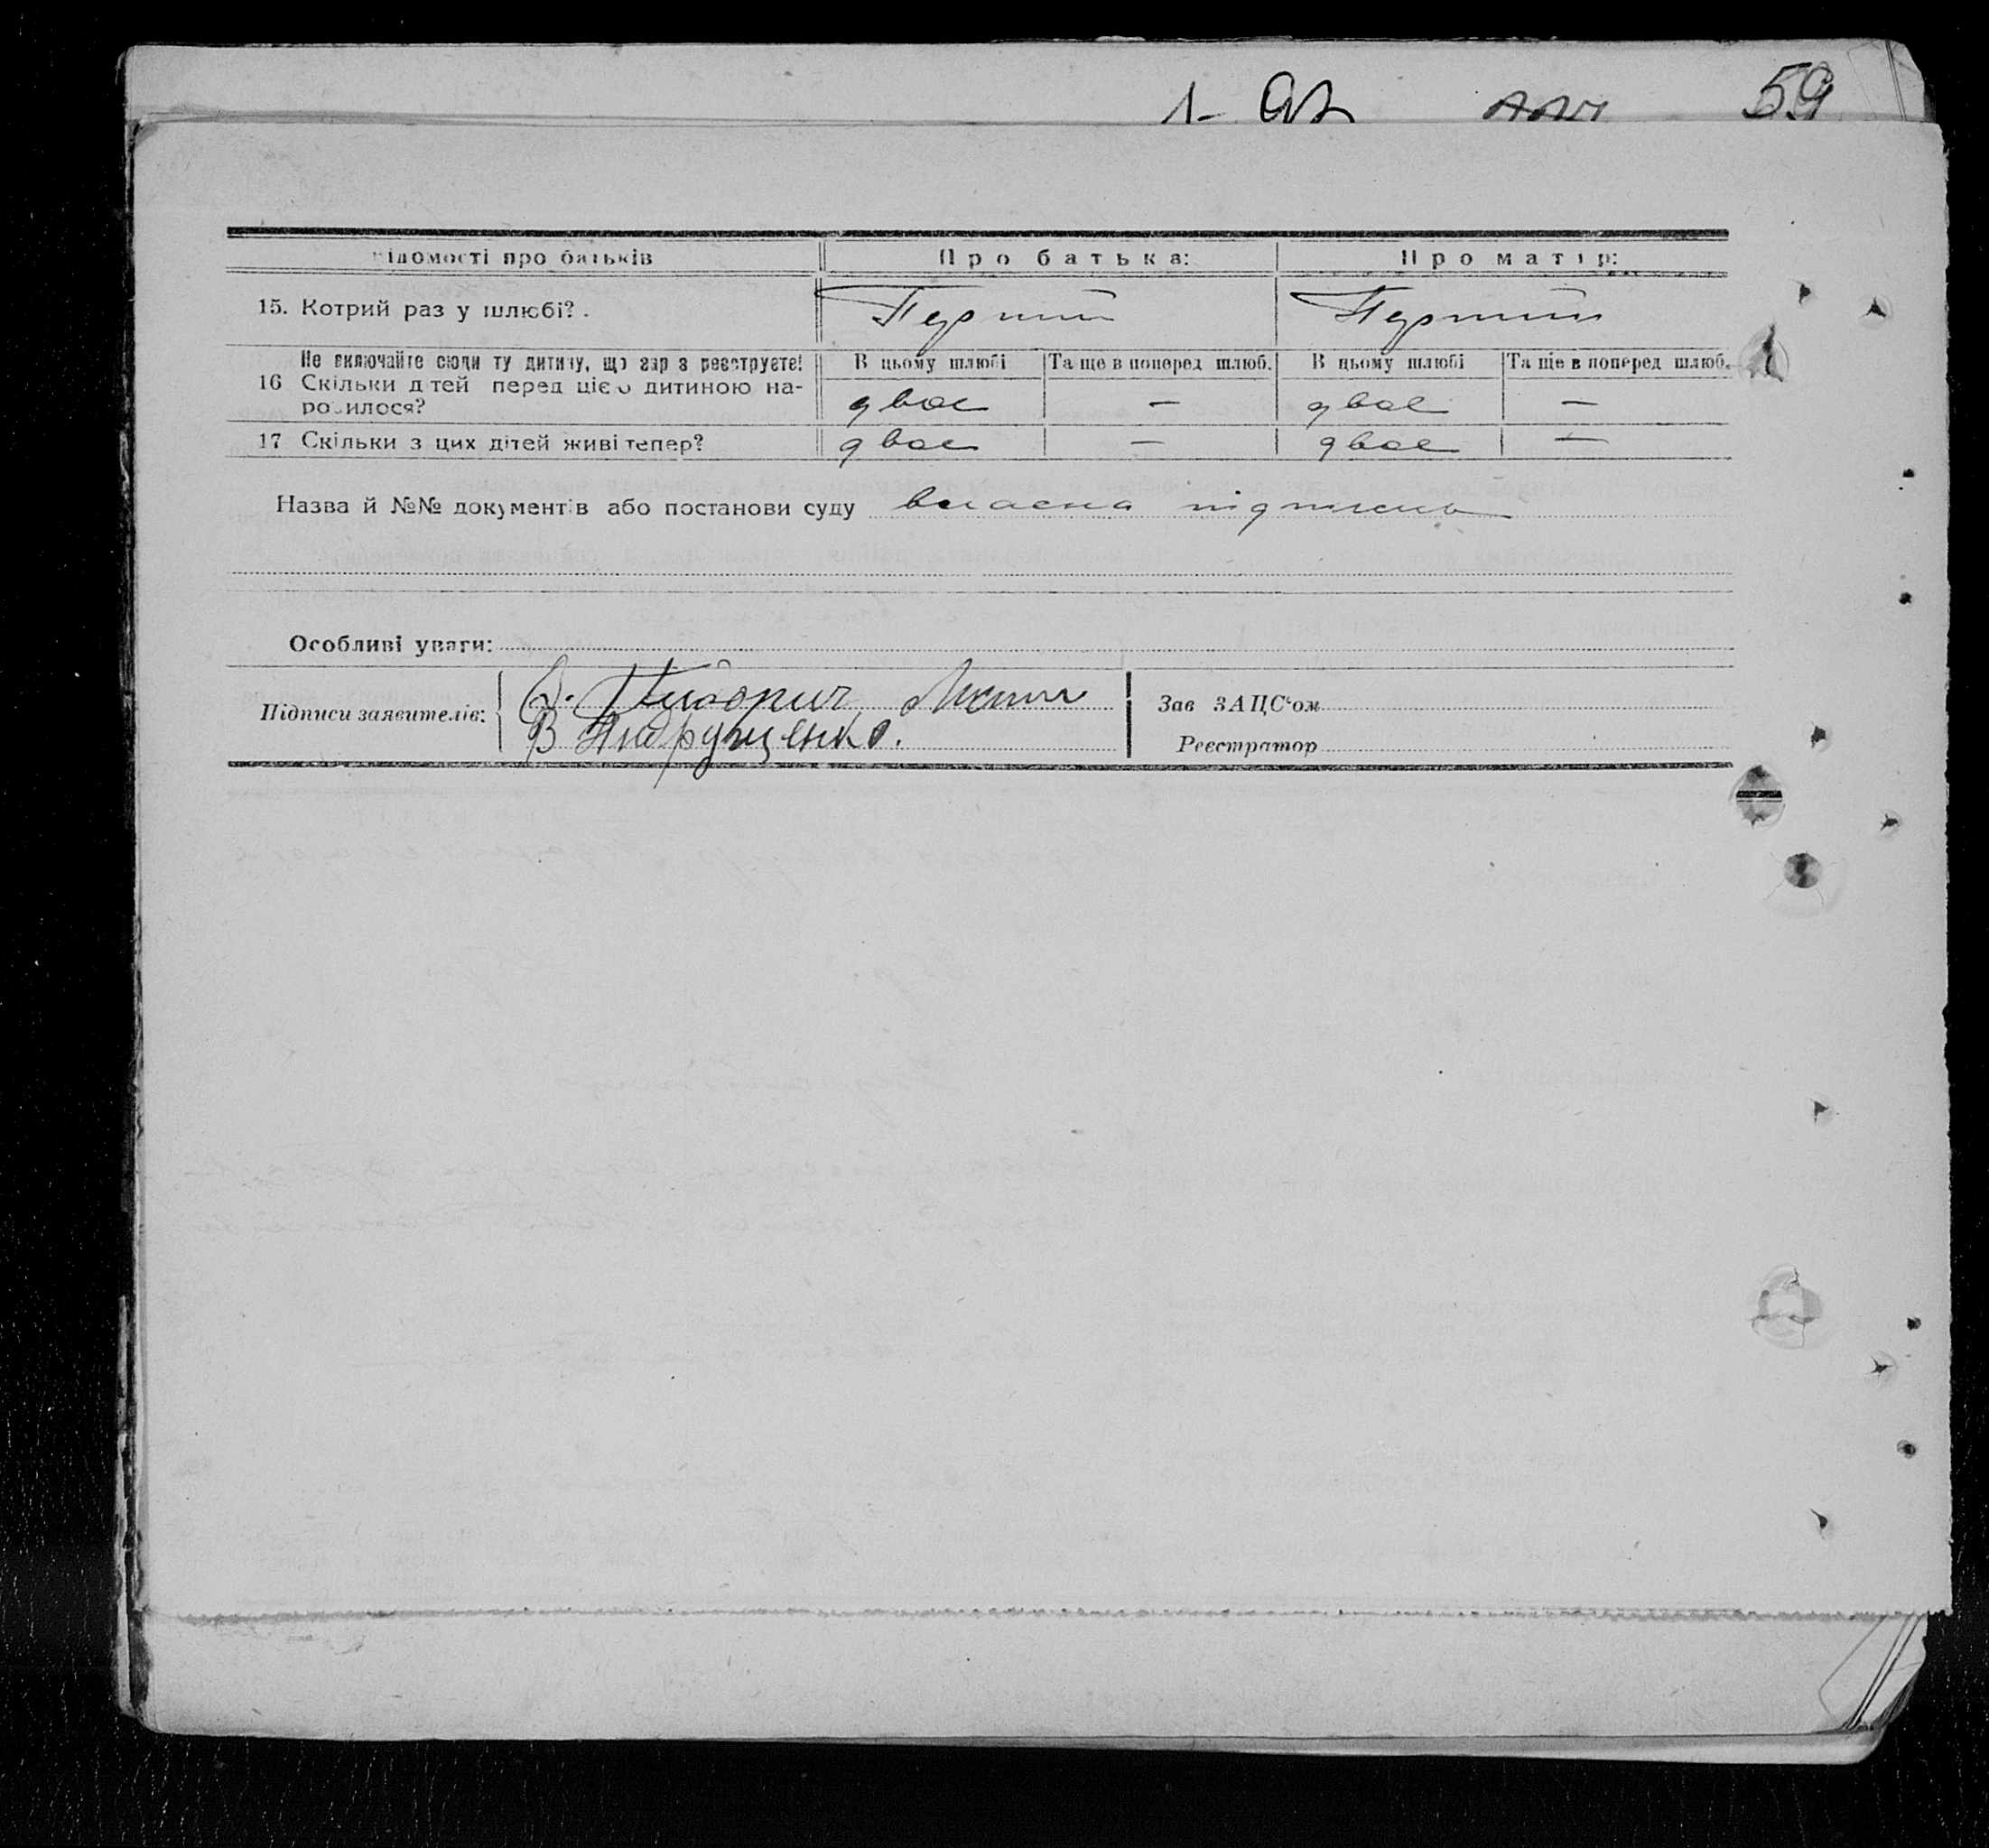 59
Відомості про батьків Про батька: Про матір:
15. Котрий раз у шлюбі? . Перший Перший
Не включайте сюди ту дитину, що зар з реєструєте! В цьому шлюбі Та ще в поперед шлюб. В цьому шлюбі Та ще в поперед шлюб.
16 Скільки дітей перед цією дитиною на-
родилося? двоє — двоє —
17 Скільки з цих дітей живі тепер? двоє — двоє —
Назва й №№ документів або постанови суду власна підписка
Особливі уваги:
Підписи заявителів: Зав ЗАЦС‘ом
В Андрущенко.
Реєстратор